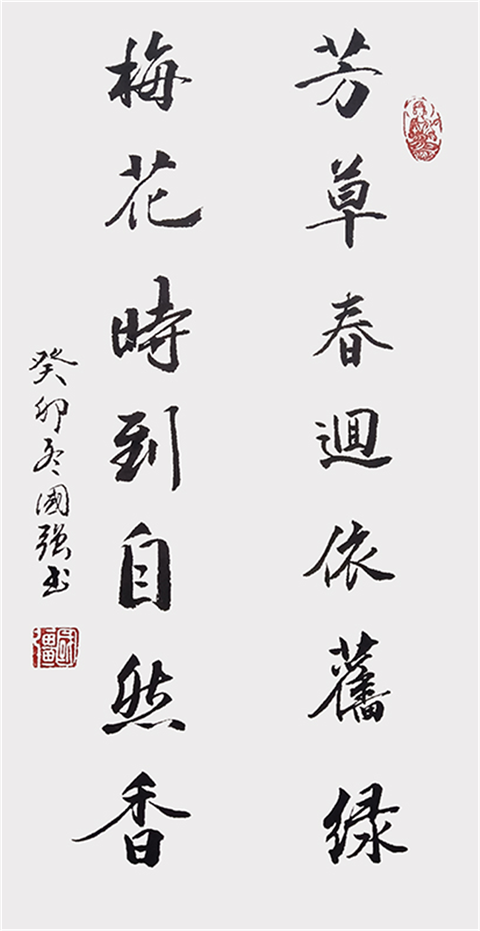 芳草春迴依舊绿
梅花時到自然香
癸卯冬國强书